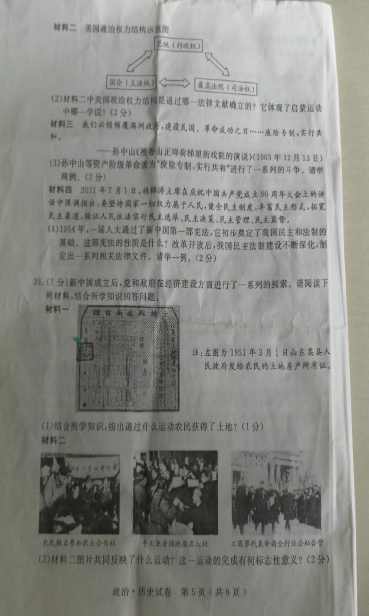 材料二 美国政治权力结构示意图
总统（行政权）
国会（立法权） 最高法院（司法权）
(2)材料二中美国政治权力结构是通过哪一法律文献确立的？它体现了启蒙运动
中哪一学说？(2分)
材料三 我们必须倾覆满洲政府，建设民国。革命成功之日……废除专制，实行共
和。
——孙中山《檀香山正埠荷梯厘街戏院的演说》(1903年12月13日)
(3)孙中山等资产阶级革命派为“废除专制，实行共和”进行了一系列的斗争。请举
两例。(2分)
材料四 2011年7月1日，胡锦涛主席在庆祝中国共产党成立90周年大会上的讲
话中强调指出，要坚持国家一切权力属于人民，健全民主制度，丰富民主形式，拓宽
民主渠道，保证人民依法实行民主选举、民主决策、民主管理、民主监督。
(4)1954年，一届人大通过了新中国第一部宪法，它初步奠定了我国民主和法制的
基础。这部宪法的性质是什么？改革开放后，我国民主法制建设不断深化，制
定出一系列相关法律文件。请举一例。(2分)
35.(7分)新中国成立后，党和政府在经济建设方面进行了一系列的探索。请阅读下
列材料，结合所学知识回答问题。
材料一
注：左图为1951年3月1日山东某县人
民政府发给农民的土地房产所有证。
(1)结合所学知识，指出通过什么运动农民获得了土地？(1分)
材料二
农民报名参加农业合作社 手工业者 工商界代表申请全行业公私合营
(2)材料二图片共同反映了什么运动？这一运动的完成有何标志性意义？(2分)
政治·历史试卷 第5页（共8页）